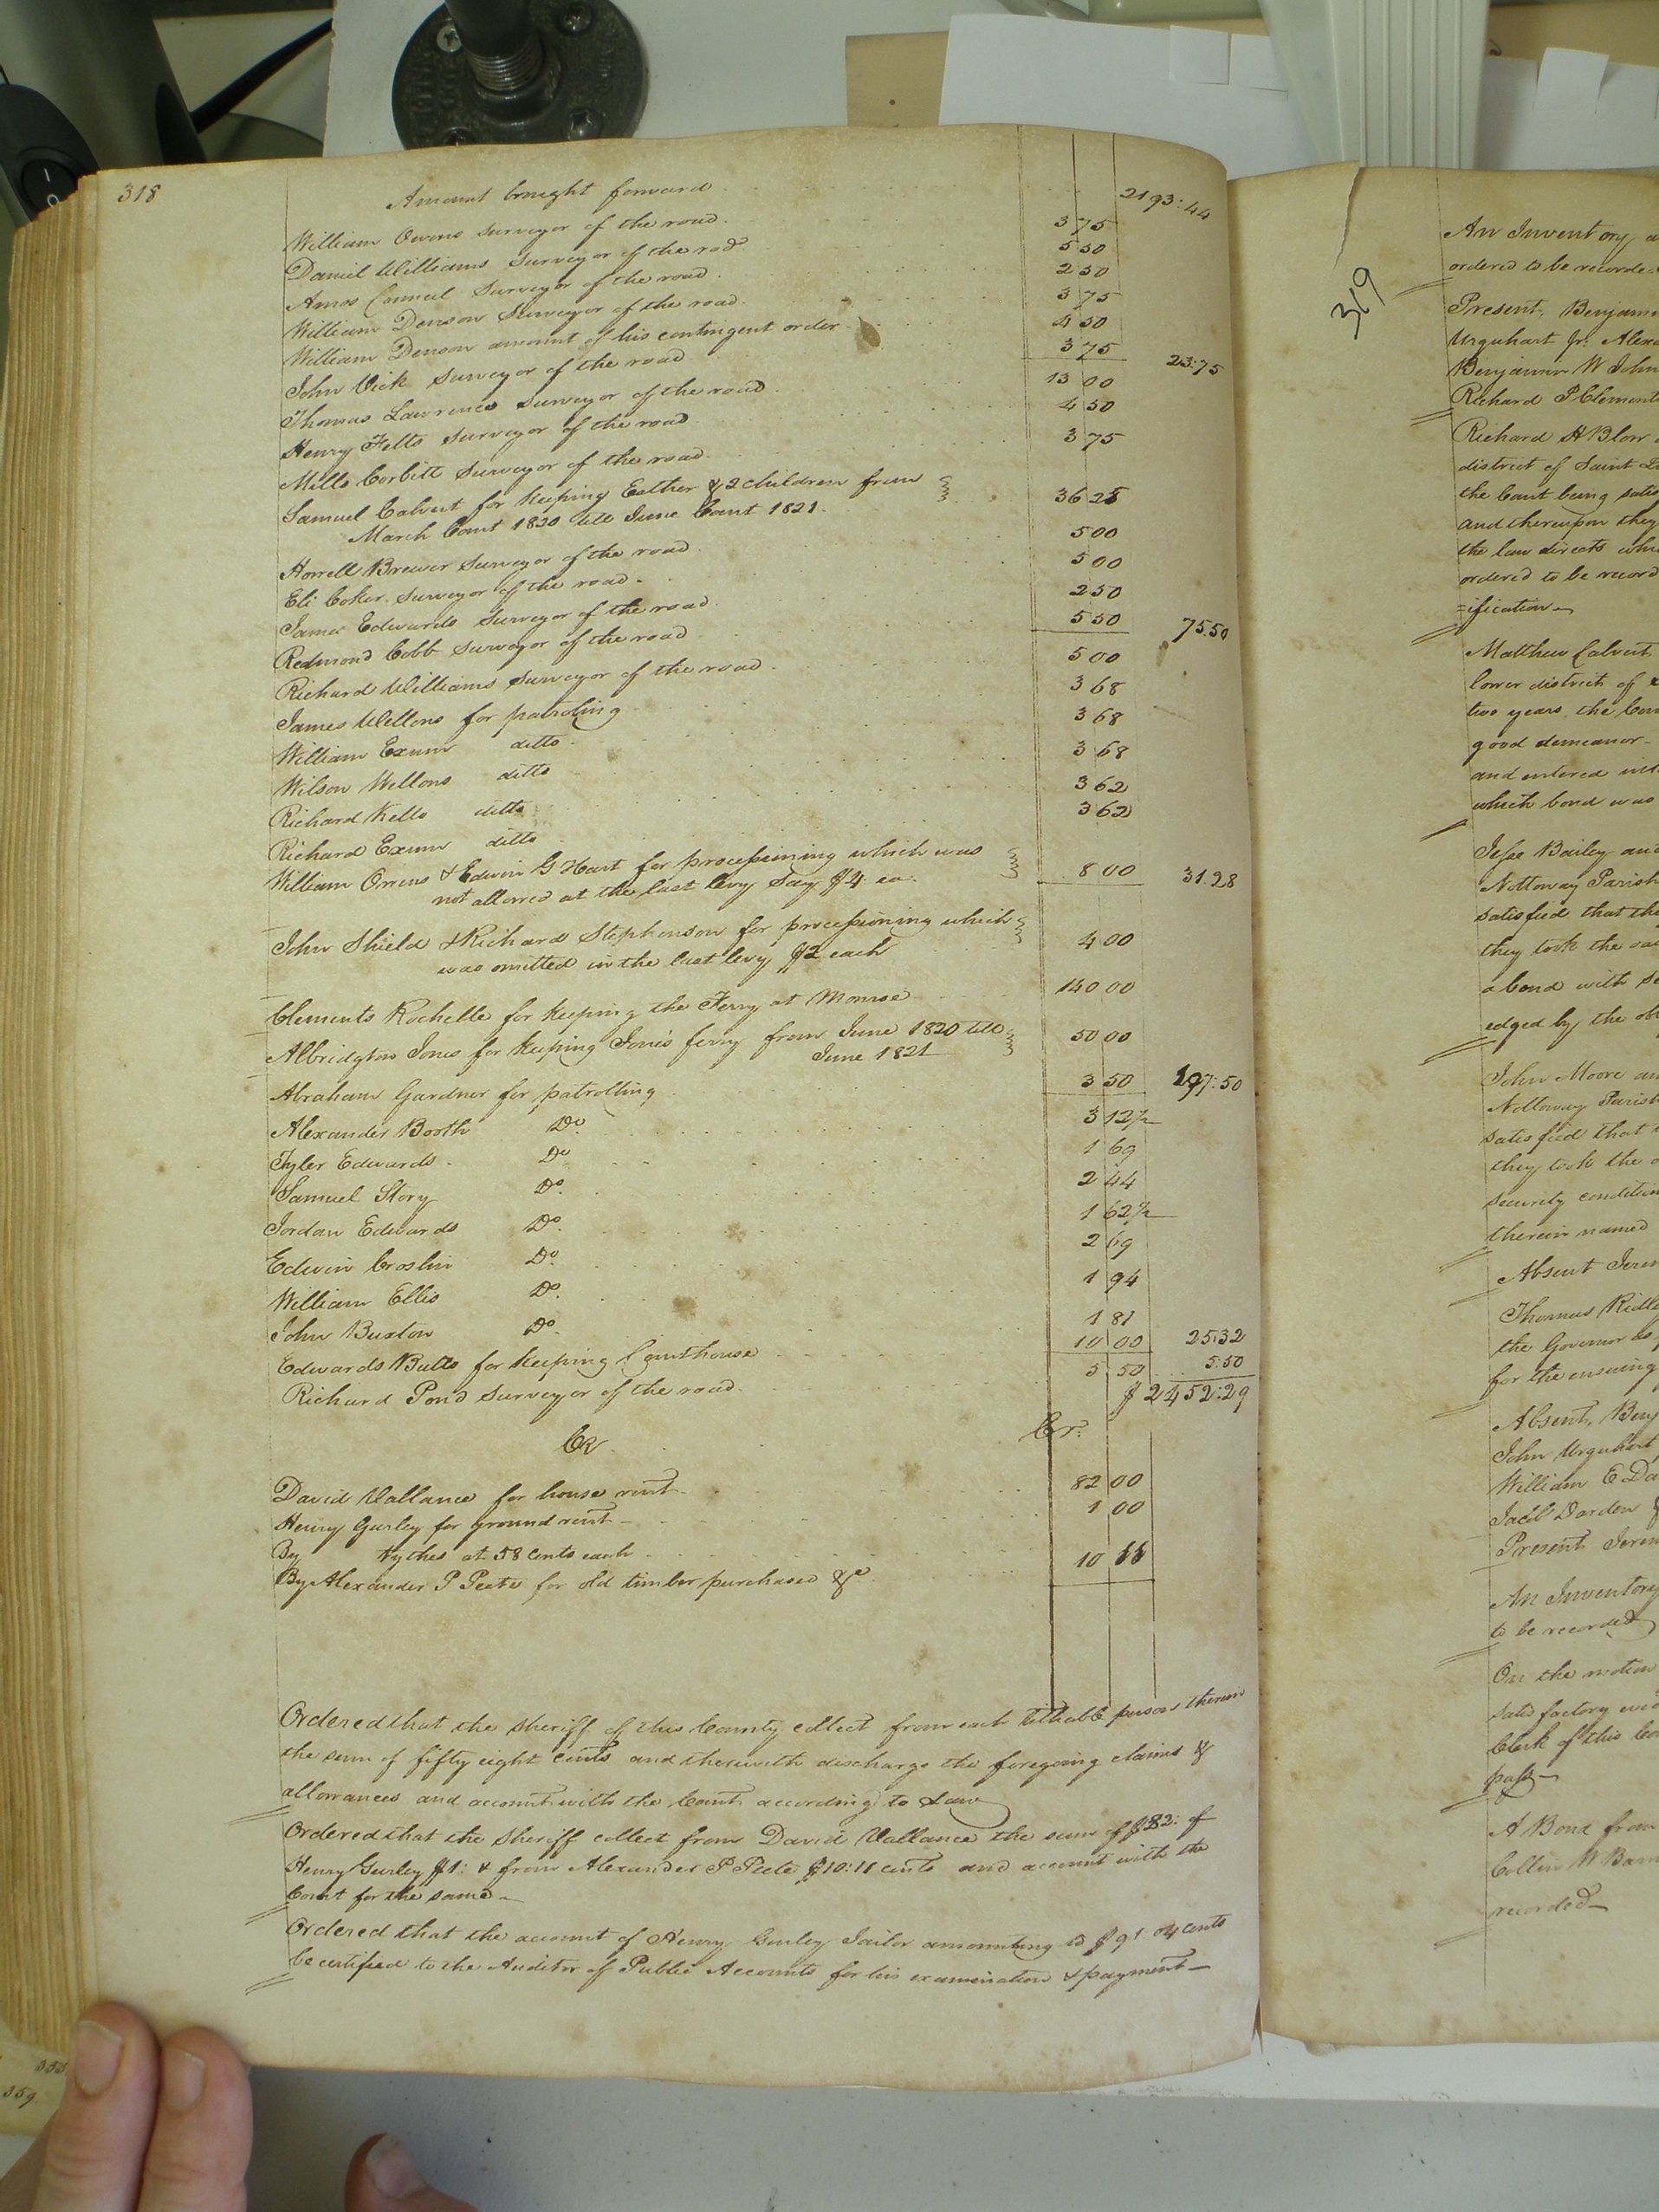 318
Amount brought forward 2193:44
William Owens surveyor of the road 3 75
Daniel Williams surveyor of the rod 5 50
Amos Council Surveyor of the road 2 50
William Denson Surveyor of the road 3 75
William Denson amount of his contingent order 4 50
John Vick Surveyor of the road 3 75 23:75
Thomas Lawrence surveyor of the road 13 00
Henry Felts Surveyor of the road 4 50
Mills Corbitt Surveyor of the road 3 75
Samuel Calvert for keeping Esther & 2 children from
March Court 1820 till June Court 1821 36 25
Horrell Brewer Surveyor of the road 5 00
Eli Coker Surveyor of the road 5 00
James Edwards Surveyor of the road 2 50
Redmond Cobb Surveyor of the road 5 50 75.50
Richard Williams surveyor of the road 5 00
James Wellons for patroling 3 68
William Exum ditto 3 68
Wilson Wellons ditto 3 68
Richard Kello ditto 3 62
Richard Exum ditto 3 62
William Owens & Edwin G Hart for processioning which was
not allowed at the last levy Say $4 ea. 8 00 31.28
John Shield & Richard Stephenson for processioning which
was omitted in the last levy $2 each 4 00
Clements Rochelle for keeping the Ferry at Monroe 140 00
Albridgton Jones for keeping Jones ferry from June 1820 till
June 1821 50 00
Abraham Gardner for patrolling 3 50 197:50
Alexander Booth Do 3 12½
Tyler Edwards Do 1 69
Samuel Story Do 2 44
Jordan Edwards Do 1 62½
Edwin Croslin Do 2 69
William Ellis Do 1 94
John Buxton Do 1 81
Edwards Butts for keeping Courthouse 10 00 25:32
Richard Pond Surveyor of the road 5 50 5:50
$ 2452:29
Cr Cr.
David Vallance for house rent 82 00
Henry Gurley for ground rent 1 00
By tythes at 58 cents each
By Alexander P Peete for old timber purchased &c 10 11
Ordered that the sheriff of this County collect from each tithable person therein
the sum of fifty eight cents and therewith discharge the foregoing claims &
allowances and account with the Court according to Law
Ordered that the Sheriff collect from David Vallance the sum of $82: of
Henry Gurley $1: & from Alexander P Peete $10:11 cents and account with the
Court for the same
Ordered that the account of Henry Gurley Jailor amounting to $91.04 cents
be certified to the Auditor of Public Accounts for his examination & payment
319
An Inventory
ordered to be recorde
Present, Benjamin
Urquhart Jr. Alexa
Benjamin W John
Richard P Clements
Richard H Blow
district of Saint
the Court being satis
and thereupon they
the law directs whi
ordered to be record
=ification
Matthew Calvert
lower district of
two years, the Cou
good demeanor
and entered into
which bond was
Jesse Bailey and
Nottoway Parish
satisfied that the
they took the oa
a bond with se
edged by the ob
John Moore an
Nottoway Parish
satisfied that
they took the o
security condition
therein named
Absent Jerem
Thomas Ridle
the Governor as
for the ensuing
Absent, Benj
John Urquhart
William E Da
Jacob Darden
Present Jerem
An Inventory
to be recorded
On the motion
satisfactory evi
Clerk of this Co
pass
A Bond from
Collin W Barn
recorded
359